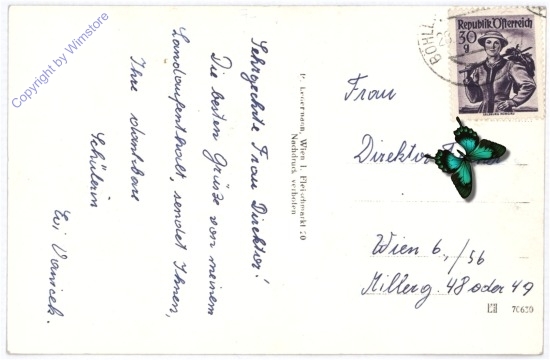 Copyright by Wimstore
Sehrgeehrte Frau Direktor!
Die besten Grüsse von meinem
Landaufenthalt, sendet Ihnen,
Ihre dankbare
Schülerin
Evi
Wien I, Fleischmarkt 20
Nachdruck verboten
Republik Österreich
30
g
Frau
Direktor
Wien 6,/56
Millerg. 48 oder 49